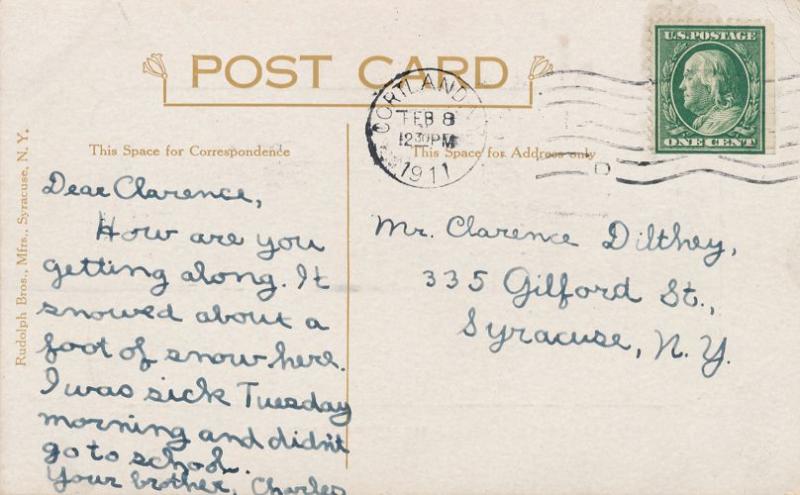 POST CARD
U.S. POSTAGE
ONE CENT
CORTLAND
FEB 8
12 30 PM
1911
D
Rudolph Bros., Mfrs., Syracuse, N. Y.
This Space for Correspondence
This Space for Address only
Dear Clarence,
How are you
getting along. It
snowed about a
foot of snow here.
I was sick Tuesday
morning and didn't
go to school.
Your brother, Charles
Mr. Clarence Dilthey,
335 Gilford St.,
Syracuse, N.Y.